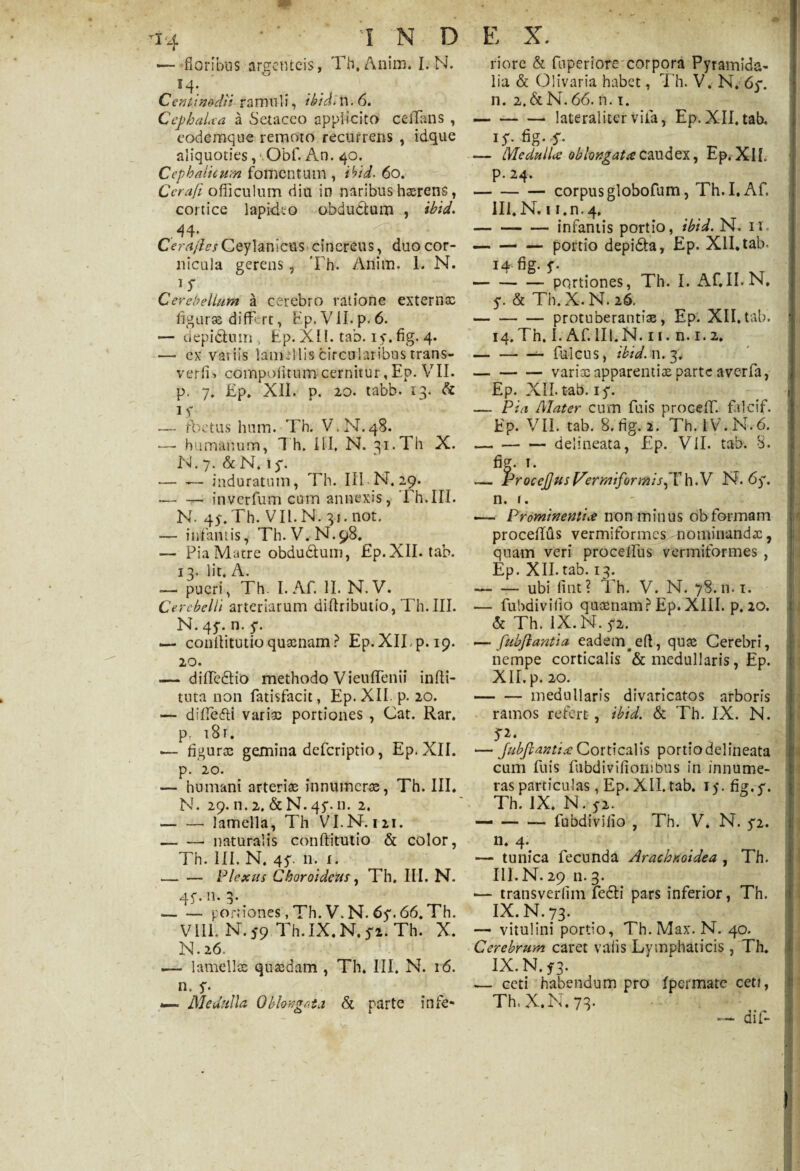 14 INDEX.
— floribus argenteis, Th. Anim. I. N.
14.
Centinodii ramuli, ibid. n. 6.
Cephalæa à Setacco applicito cessans,
eodemque remoto recurrens, idque
aliquoties, Obs. An. 40.
Cephalicum fomentum, ibid. 60.
Cerasi officulum diu in naribus hærens,
cortice lapideo obductum, ibid.
44.
Cerastes Ceylanicus cinereus, duo cor-
nicula gerens, Th. Anim. I. N.
15
Cerebellum à cerebro ratione externæ
figuræ differt, Ep. VII. p. 6.
— depictum, Ep. XII. tab. 15. fig. 4.
— ex variis lamellis circularibus trans-
versis compositum cernitur, Ep. VII.
p. 7. Ep. XII. p. 20. tabb. 13. &
15
— fœtus hum. Th. V. N. 48.
— humanum, Th. III. N. 31. Th X.
N. 7. & N. 15.
— — induratum, Th. III N. 29.
— — inversum cum annexis, Th. III.
N. 45. Th. VII. N. 31. not.
— infantis, Th. V. N. 98.
— Pia Matre obductum, Ep. XII. tab.
13. lit. A.
— pueri, Th. I. Af. II. N. V.
Cerebelli arteriarum distributio, Th. III.
N. 45. n. 5.
— constitutio quænam? Ep. XII. p. 19.
20.
— dissectio methodo Vieussenii insti-
tuta non satisfacit, Ep. XII. p. 20.
— dissecti variæ portiones, Cat. Rar.
p. 181.
— figuræ gemina descriptio, Ep. XII.
p. 20.
— humani arteriæ innumeræ, Th. III.
N. 29. n. 2. & N. 45. n. 2.
— — lamella, Th VI. N. 121.
— — naturalis constitutio & color,
Th. III. N. 45. n. 1.
— — Plexus Choroideus, Th. III. N.
45. n. 3.
— — portiones, Th. V. N. 65. 66. Th.
VIII. N. 59 Th. IX. N. 52. Th. X.
N. 26.
— lamellæ quædam, Th. III. N. 16.
n. 5.
— Medulla Oblongata & parte infe-
riore & superiore corpora Pyramida-
lia & Olivaria habet, Th. V. N. 65.
n. 2. & N. 66. n. 1.
— — — lateraliter visa, Ep. XII. tab.
15. fig. 5.
— Medullæ oblongatæ caudex, Ep. XII.
p. 24.
— — — corpus globosum, Th. I. Af.
III. N. 11. n. 4.
— — — infantis portio, ibid. N. 11.
— — — portio depicta, Ep. XII. tab.
14 fig. 5.
— — — portiones, Th. I. Af. II. N.
5. & Th. X. N. 26.
— — — protuberantiæ, Ep. XII. tab.
14. Th. I. Af. III. N. 11. n. 1. 2.
— — — sulcus, ibid. n. 3.
— — — variæ apparentiæ parte aversa,
Ep. XII. tab. 15.
— Pia Mater cum suis process. falcif.
Ep. VII. tab. 8. fig. 2. Th. IV. N. 6.
— — — delineata, Ep. VII. tab. 8.
fig. 1.
— Processus Vermiformis, Th. V N. 65.
n. 1.
— Prominentiæ non minus ob formam
processus vermiformes nominandæ,
quam veri processus vermiformes,
Ep. XII. tab. 13.
— — ubi sint? Th. V. N. 78. n. 1.
— subdivisio quænam? Ep. XIII. p. 20.
& Th. IX. N. 52.
— substantia eadem est, quæ Cerebri,
nempe corticalis & medullaris, Ep.
XII. p. 20.
— — medullaris divaricatos arboris
ramos refert, ibid. & Th. IX. N.
52.
— substantiæ Corticalis portio delineata
cum suis subdivisionibus in innume-
ras particulas, Ep. XII. tab. 15. fig. 5.
Th. IX. N. 52.
— — — subdivisio, Th. V. N. 52.
n. 4.
— tunica secunda Arachnoidea, Th.
III. N. 29 n. 3.
— transversim secti pars inferior, Th.
IX. N. 73.
— vitulini portio, Th. Max. N. 40.
Cerebrum caret vasis Lymphaticis, Th.
IX. N. 53.
— ceti habendum pro spermate ceti,
Th. X. N. 73.
— dif-